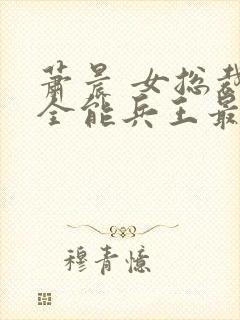 萧晨 女总裁
全能兵王最
穆青憶